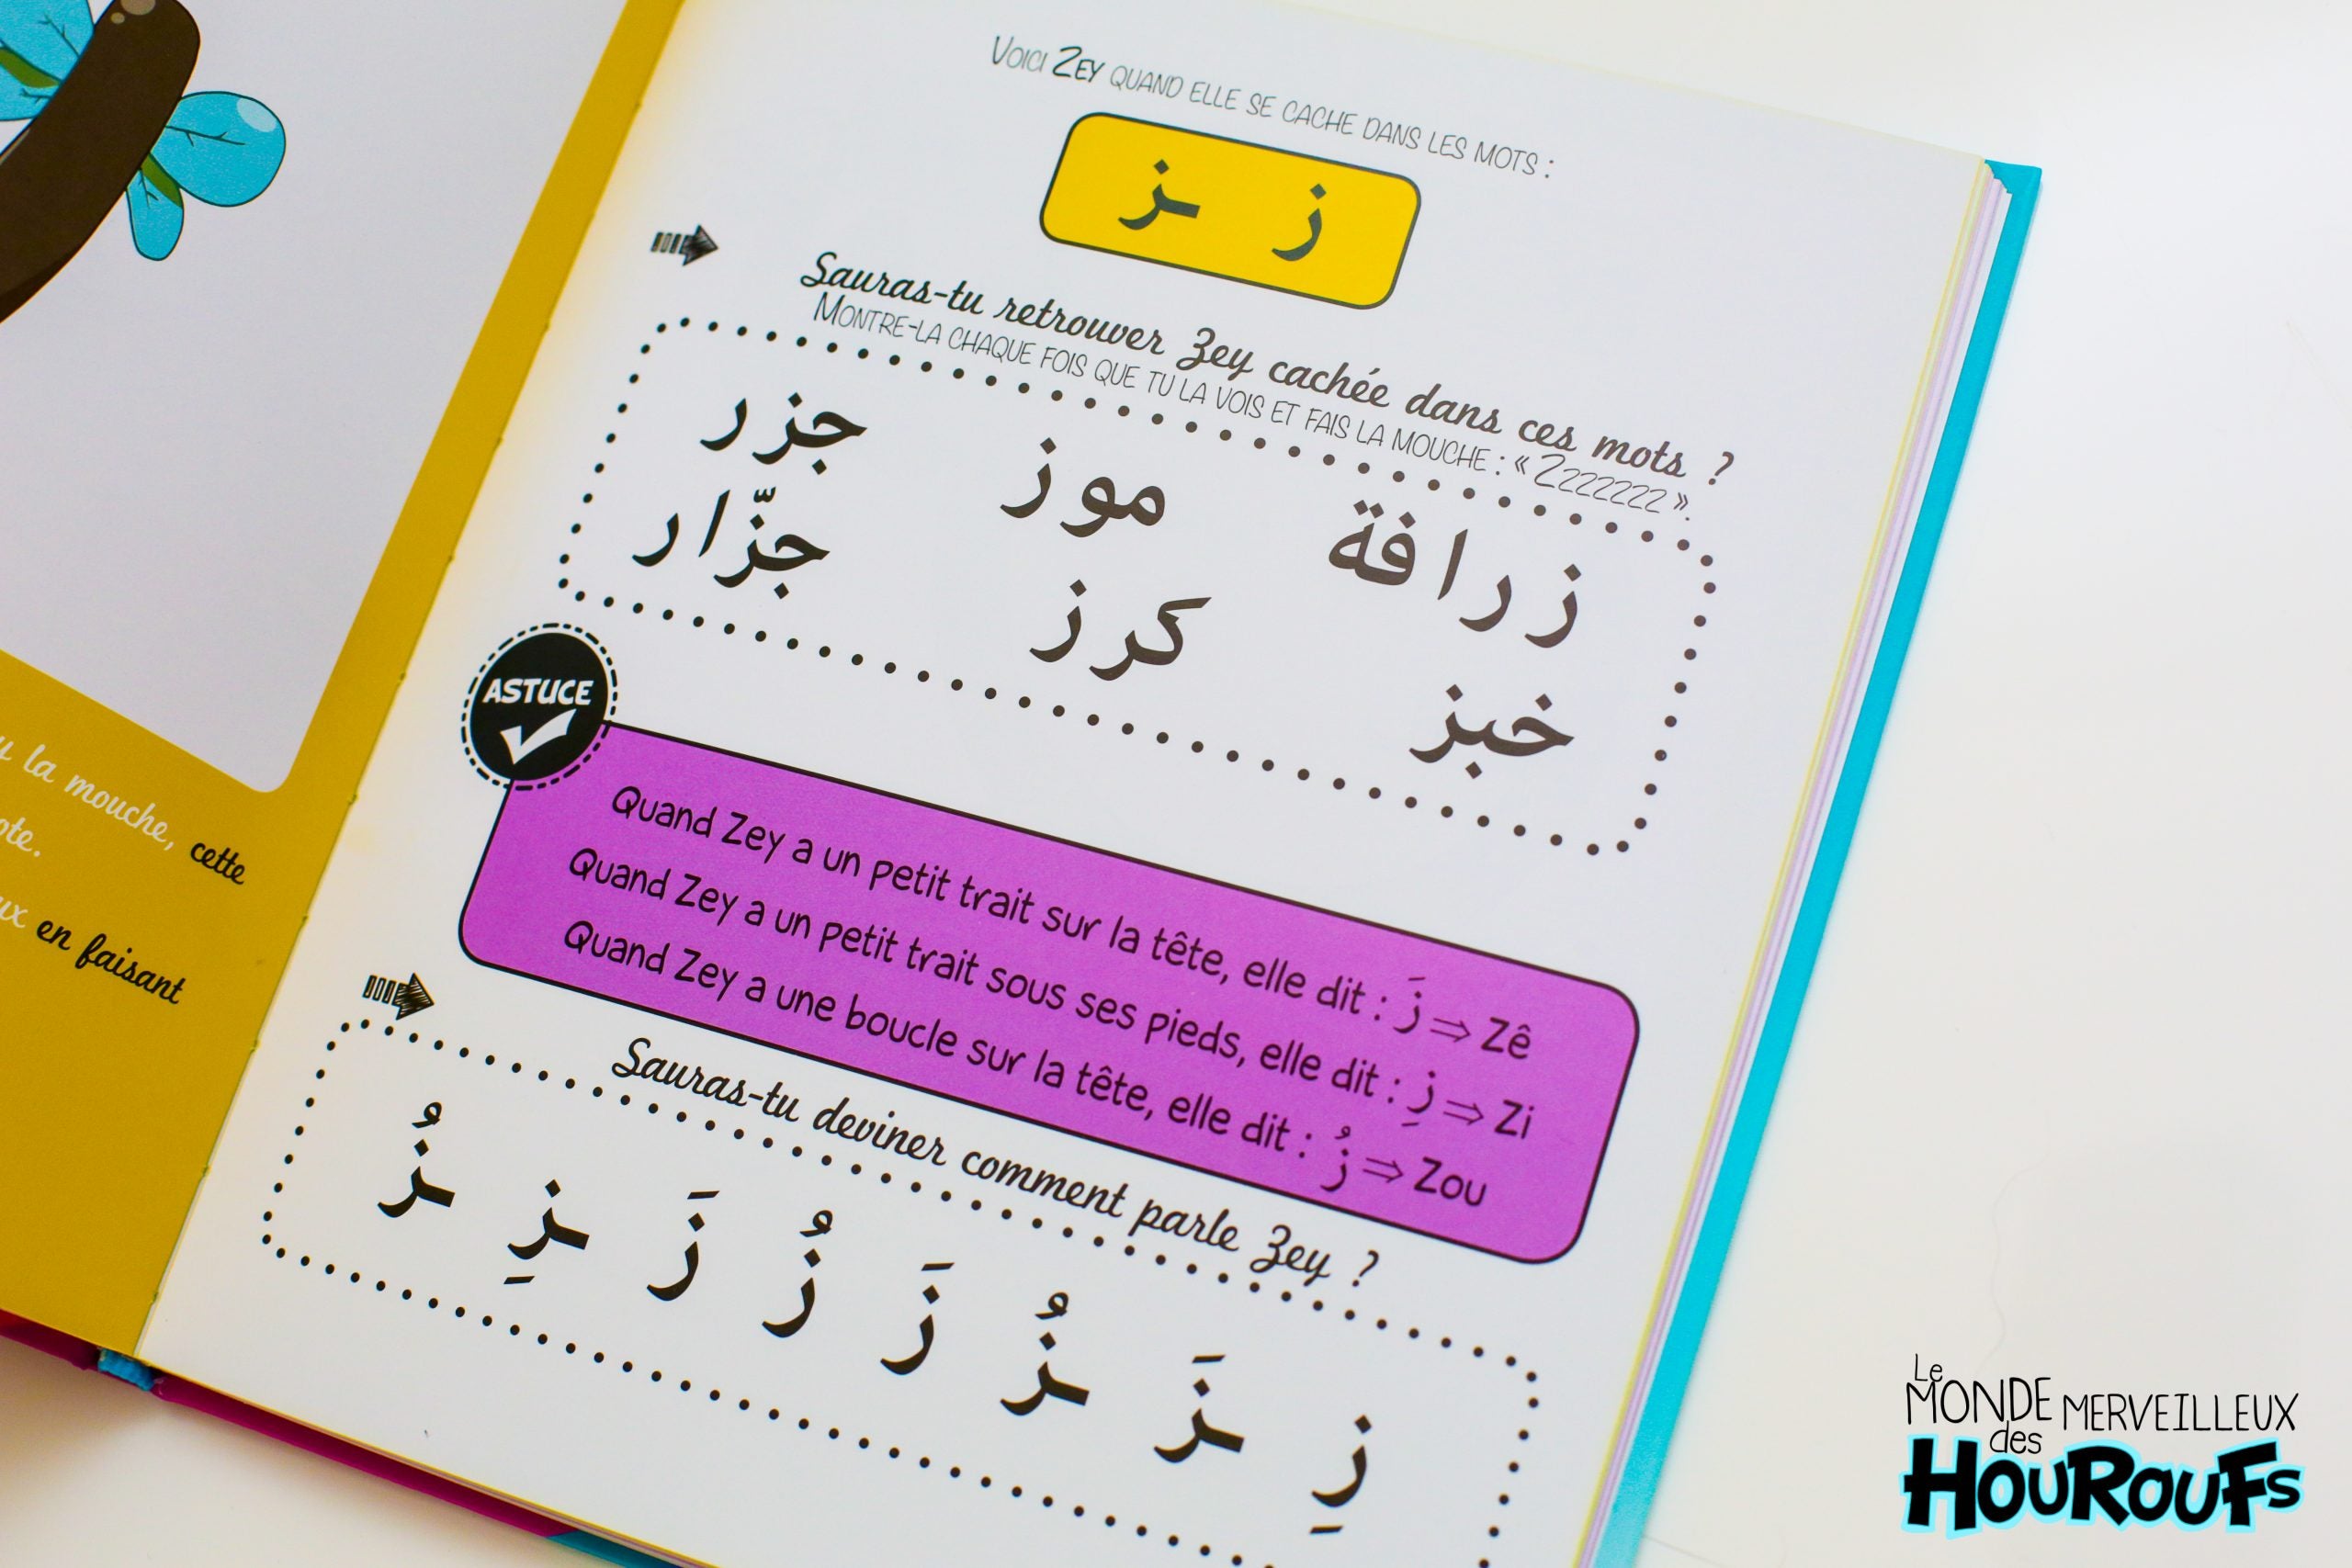 u la mouche, cette
ote.
ux en faisant
Voici Zey quand elle se cache dans les mots :
ز ـز
Sauras-tu retrouver Zey cachée dans ces mots ?
Montre-la chaque fois que tu la vois et fais la mouche : « Zzzzzzz ».
زرافة موز جزر
خبز كرز جزّار
ASTUCE
Quand Zey a un petit trait sur la tête, elle dit : زَ ⇒ Zê
Quand Zey a un petit trait sous ses pieds, elle dit : زِ ⇒ Zi
Quand Zey a une boucle sur la tête, elle dit : زُ ⇒ Zou
Sauras-tu deviner comment parle Zey ?
زِ ـزَ ـزُ زَ زُ زَ ـزِ ـزُ
Le
MONDE MERVEILLEUX
des
HOUROUFS